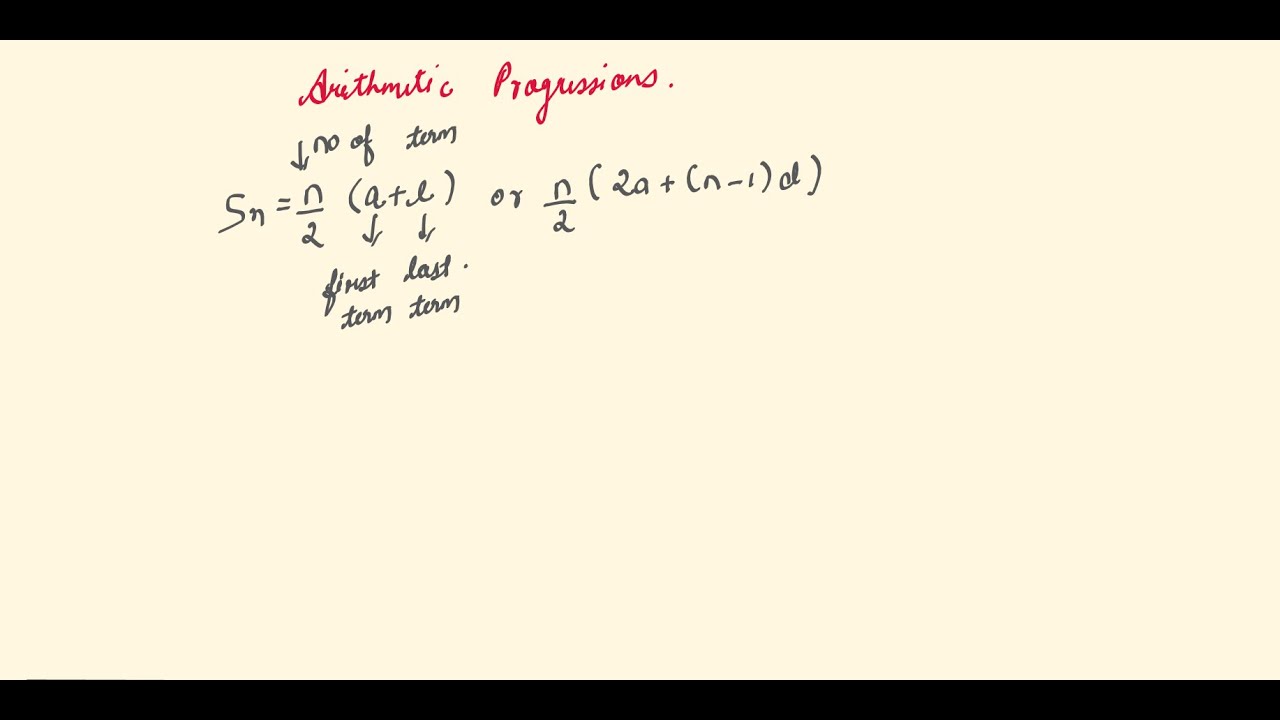 Arithmetic Progressions.
↓ no of term
Sn = n/2 (a+l) or n/2 (2a + (n-1)d)
↓ ↓
first last.
term term